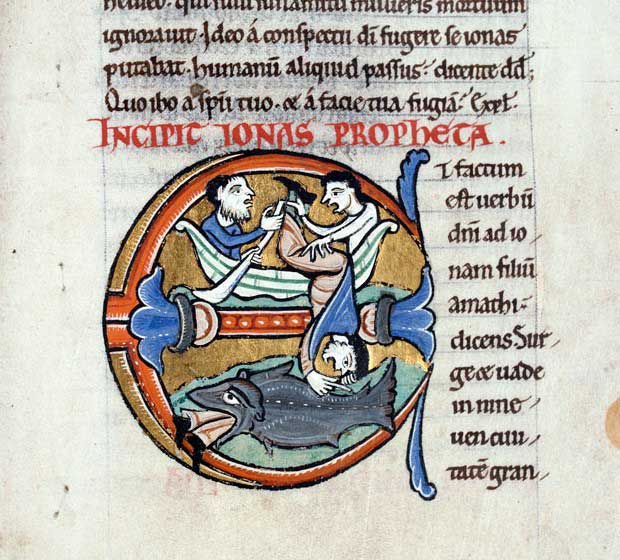 mulieris mortuum
ignorauit · Ideo á conspectu dī fugere se ionas
putabat · humanū aliquid passus · dicente dd̄;
Quo ibo a spū tuo · & á facie tua fugiā · Expl̄.
INCIPIT IONAS PROPHETA.
ET factum
est uerbū
dn̄i ad io-
nam filiū
amathi-
dicens. Sur-
ge & uade
in nine-
uen ciui-
tatē gran-